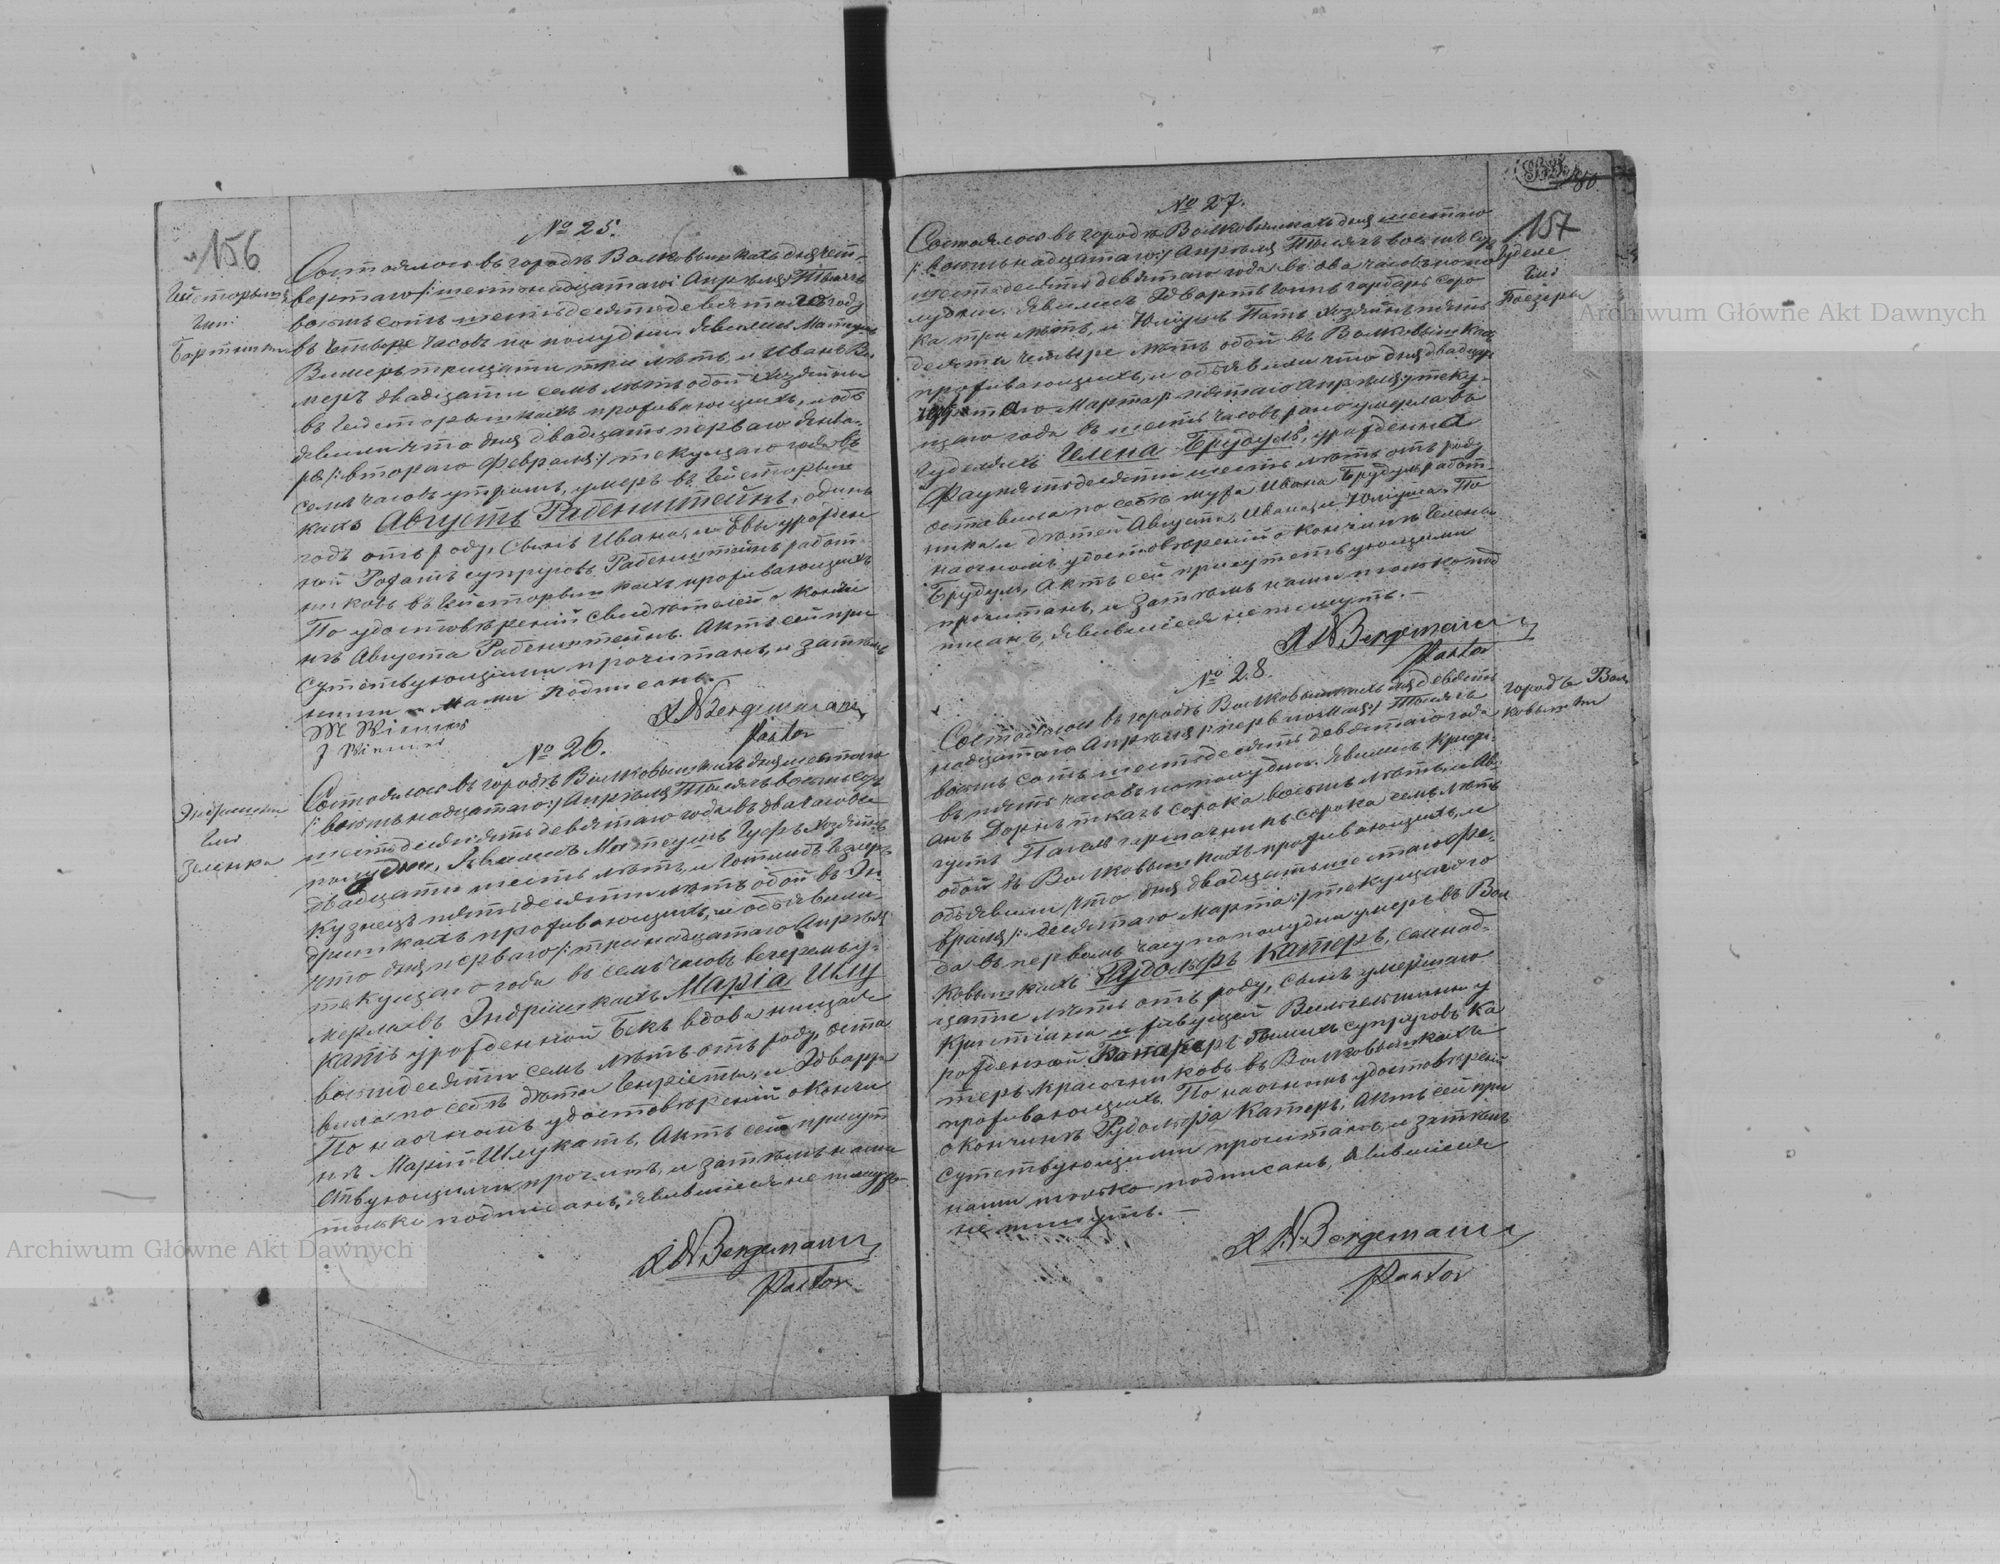 156
№ 25.
Гейсторышки
Гмі:
Бартники
Состоялось въ городѣ Волковышкахъ дня чет-
вертаго /: шестнадцатаго :/ Апрѣля Тысяча
восемь сотъ шестьдесятъ девятаго году
въ четыре часовъ по полудни. Явились Матеушъ
Вимеръ тридцати три лѣтъ, и Иванъ Ви-
меръ двадцати семь лѣтъ обой Хозяины
въ Гейсторышкахъ проживающихъ, и объ
явили что дня двадцать перваго Янва-
ря /: втораго Февраля :/ текущаго года въ
семь часовъ утромъ, умеръ въ Гейсторыш
кахъ Августъ Рабенштейнъ, одинъ
годъ отъ роду, сынъ Ивана, и Евы урожден
ной Рогатъ супруговъ Рабенштейнъ работ-
никовъ въ Гейсторышкахъ проживающихъ
По удостовѣреніи свидѣтелей о кончи
нѣ Августа Рабенштейнъ. Актъ сей при
сутствующими прочитанъ, и затѣмъ
ними и нами подписанъ.
M Wiemer
J Wiemer
A W Bergemann
Pastor
№ 26.
Эндришки
Гмі
Зеленка
Состоялось въ городѣ Волковышкахъ дня шестаго
/: восьмнадцатаго :/ Апрѣля Тысяча восемьсотъ
шестьдесятъ девятаго года въ два часовъ по
полудни, Явились Матеушъ Гуфъ Хозяинъ
двадцати шесть лѣтъ, и Готлибъ
кузнецъ пятьдесяти лѣтъ обой въ Эн-
дришкахъ проживающихъ, и объявили
что дня перваго /: тринадцатаго Апрѣля
текущаго года въ семь часовъ вечеремъ у-
мерла въ Эндришкахъ Марія Шлу
катъ урожденной Бекъ вдова нищая
восьмдесяти семь лѣтъ отъ роду, оста
вила по себѣ дѣти Генріеты, и Эдварда
По наочномъ удостовѣреній о кончи
нѣ Маріи Шлукатъ, Актъ сей присут
ствующими прочитанъ, и затѣмъ нами
только подписанъ, явившіеся не пишутъ
A W Bergemann
Pastor
80.
157
№ 27.
Гудене
Гмі
Поезеры
Состоялось въ городѣ Волковышкахъ дня шестаго
/: восьмнадцатаго :/ Апрѣля Тысяча восемьсотъ
шестьдесятъ девятаго года въ два часовъ по по
лудни. Явились Эдвартъ Гинцъ гарбаръ соро
ка три лѣтъ, и Юліусъ Патъ Хозяинъ пять
десяти четыре лѣтъ обой въ Волковышкахъ
проживающихъ, и объявили что дня двадцать
четвертаго Марта /: пятаго Апрѣля :/ теку-
щаго года въ шесть часовъ рано умерла въ
Гуделяхъ Елена Брудуль, урожденна
Фау пятьдесяти шесть лѣтъ отъ роду
оставила по себѣ мужа Ивана Брудуль работ-
ника и дѣтей Августа, Ивана, и Юліуша. По
наочномъ удостовѣреній о кончинѣ Елены
Брудуль, Актъ сей присутствующими
прочитанъ, и затѣмъ нами только под
писанъ, явившіеся не пишутъ. —
A W Bergemann
Pastor
№ 28.
городъ Вол
ковышки
Состоялось въ городѣ Волковышкахъ дня девят
надцатаго Апрѣля /: перваго Мая :/ Тысяча
восемь сотъ шестьдесятъ девятаго года
въ пять часовъ по полудни. Явились Кристі-
анъ Дорнъ ткачъ сорока восемь лѣтъ, и Ав-
густъ Пагелъ сорока семь лѣтъ
обой въ Волковышкахъ проживающихъ, и
объявили, что дня двадцать шестаго Фе-
враля /: десятаго Марта :/ текущаго го
да въ первомъ часу по полудни умеръ въ Вол
ковышкахъ Рудольфъ Катеръ, семнад-
цати лѣтъ отъ роду, сынъ умершаго
Кристіана и живущей Вильгельмины у
рожденной бывшихъ супруговъ Ка
теръ красочниковъ въ Волковышкахъ
проживающихъ. По наочномъ удостовѣреній
о кончинѣ Рудольфа Катеръ, Актъ сей при
сутствующими прочитанъ, и затѣмъ
нами только подписанъ, явившіеся
не пишутъ. —
A W Bergemann
Pastor
Archiwum Główne Akt Dawnych
Archiwum Główne Akt Dawnych